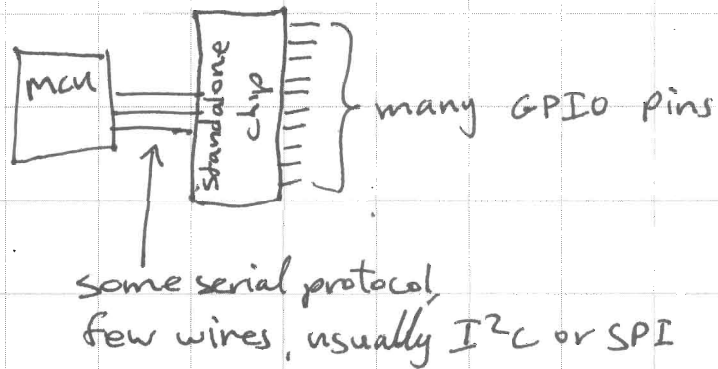 MCU
standalone
chip
many GPIO pins
some serial protocol,
few wires, usually I²C or SPI